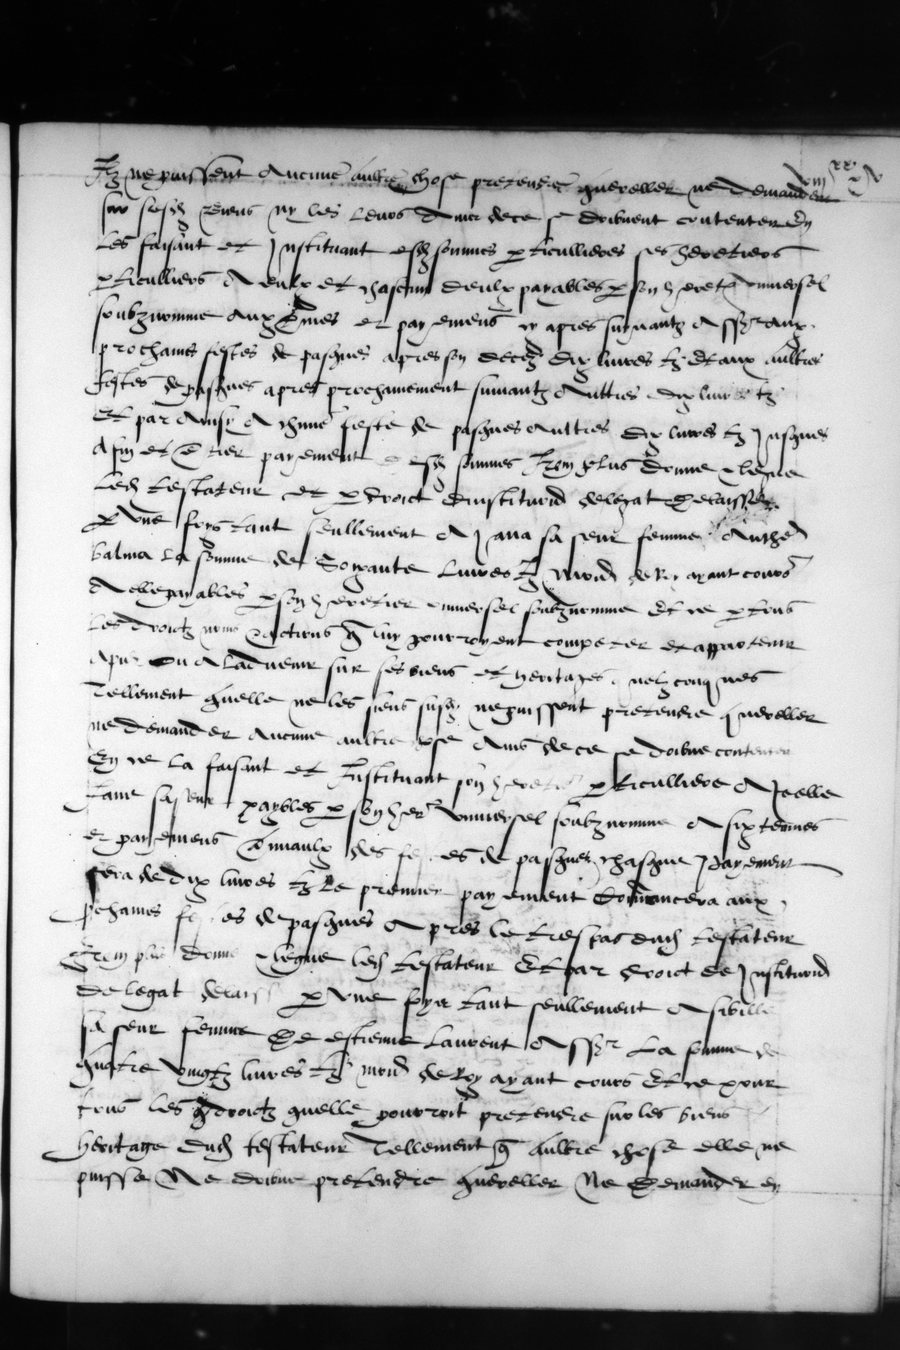 Ilz ne puissent aucune aultre chose pretendre quereller ne demander
sur sesd biens ny les leurs ains de ce se doibuent contenter En
les faisant et Instituant esd sommes particullieres ses heretiers
particulliers A eulx et chascun deulx payables par son heretier universel
soubz nomme aux termes et payemens cy apres suyuantz Assr aux
prochaines festes de pasques apres son deces dix liures tz Et aux aultres
festes de pasques apres prochainement suiuantz Aultres dix liures tz
Et par Ainsy A chune feste de pasques Aultres dix liures tz Jusques
A fin et entier payement desd sommes Item plus donne legue
Led testateur et par droict dinstitution de legat delaisse
par vne foys tant seullement A Jana sa seur femme Anthe
balma La somme de Soyxante Liures tz mon de Roy ayant cours
A elle payables par son heretier universel soubz nomme Et ce par tous
Les droictz noms actions q luy pourroyent competer et appartenir
A pnt ou A Laduenir sur ses biens et heritages quelzconques
Tellement quelle ne les siens susd ne puissent pretendre quereller
ne demander Aucune aultre chose Ains de ce se doibue contenter
En ce La faisant et Instituant son heretiere particulliere A Icelle
Jane sa seur payables par son her universel soubz nomme A six termes
et payemens Annaulx des festes de pasques chasque payement
sera de dix liures tz Le premier payement Commancera aux
pchaines festes de pasques Apres le trespas dud testateur
Item plus donne legue led testateur Et par droict de Institution
de legat delaisse par vne foys tant seullement A sibille
sa seur femme De estienne Laurent Assr La somme de
quatre vingtz liures tz mon de Roy ayant cours Et ce pour
tous les droictz quelle pourroit pretendre sur les biens
heritage dud testateur Tellement q Aultre chose elle ne
puisse Ne doibue pretendre quereller Ne Demander en